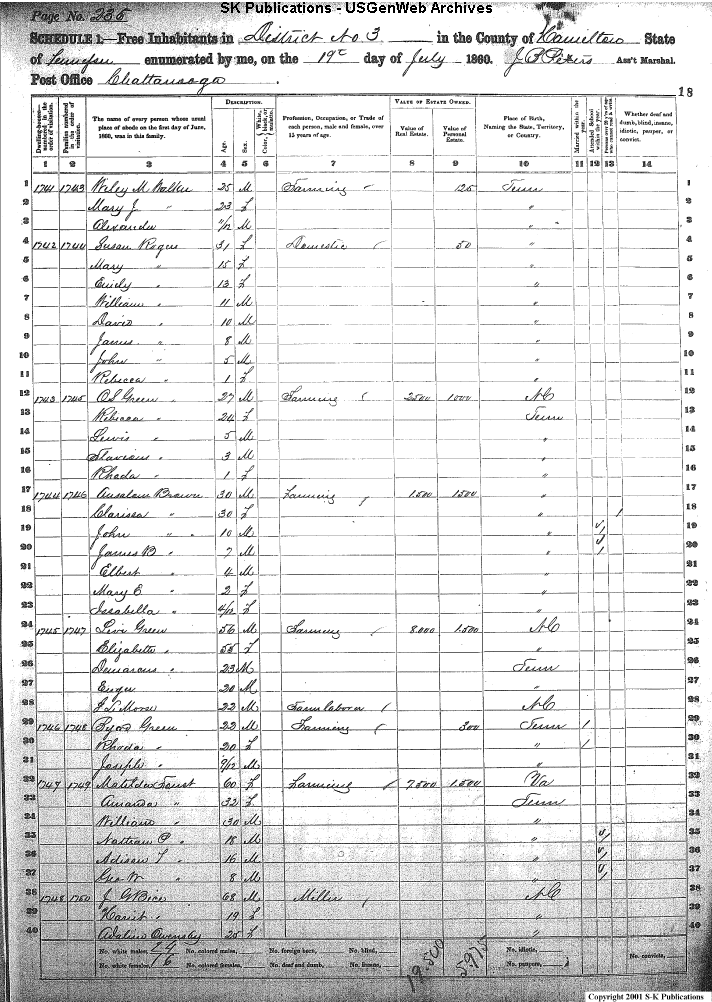 SK Publications - USGenWeb Archives
Page No. 235
SCHEDULE 1.—Free Inhabitants in District No 3 in the County of Hamilton State
of Tennessee enumerated by me, on the 19th day of July 1860. Ass't Marshal.
Post Office Chattanooga
18
Dwelling-houses—numbered in the order of visitation.
Families numbered in the order of visitation.
The name of every person whose usual place of abode on the first day of June, 1860, was in this family.
DESCRIPTION.
Age.
Sex.
Color, White, black, or mulatto.
Profession, Occupation, or Trade of each person, male and female, over 15 years of age.
VALUE OF ESTATE OWNED.
Value of Real Estate.
Value of Personal Estate.
Place of Birth, Naming the State, Territory, or Country.
Married within the year.
Attended School within the year.
Whether deaf and dumb, blind, insane, idiotic, pauper, or convict.
1 2 3 4 5 6 7 8 9 10 11 12 13 14
1 1741 1743 Wiley M Walker 25 M Farming 125 Tenn 1
2 Mary J " 23 f " 2
3 Alexander 11/12 M " 3
4 1742 1744 Susan Rogers 31 f Domestic 50 " 4
5 Mary " 15 f " 5
6 Emily " 13 f " 6
7 William " 11 M " 7
8 David " 10 M " 8
9 James " 8 M " 9
10 John " 5 M " 10
11 Rebecca " 1 f " 11
12 1743 1745 Green 27 M Farming 2500 1000 NC 12
13 Rebecca " 24 f Tenn 13
14 Lewis " 5 M " 14
15 " 3 M " 15
16 Rhoda " 1 f " 16
17 1744 1746 Ansalam Brown 30 M Farming 1.500 1500 " 17
18 Clarissa " 30 f " 1 18
19 John " 10 M " 1 19
20 James B " 7 M " 1 20
21 Elbert " 4 M " 21
22 Mary E " 2 f " 22
23 Issabella " 4/12 f " 23
24 1745 1747 Levi Green 56 M Farming 8.000 1.500 NC 24
25 Elizabeth " 55 f " 25
26 Demarcus " 23 M Tenn 26
27 20 M " 27
28 Moore 22 M Farm laborer NC 28
29 1746 1748 Green 22 M Farming 300 Tenn 1 29
30 Rhoda " 20 f " 1 30
31 Joseph " 9/12 M " 31
32 1747 1749 Matilda Foust 60 f Farming 7.500 1.500 Va 32
33 Amanda " 32 f Tenn 33
34 William " 30 M " 34
35 Nathan P " 18 M " 1 35
36 Adison F " 16 M " 1 36
37 Geo W " 8 M " 1 37
38 1748 1750 J G Bice 68 M Miller NC 38
39 Hariet " 19 f " 39
40 Adaline Owensby 25 f " 40
No. white males, 24 No. colored males, No. foreign born, No. blind, 19.500 5.975 No. idiotic, No. convicts,
No. white females, 16 No. colored females, No. deaf and dumb, No. insane, No. paupers,
Copyright 2001 S-K Publications